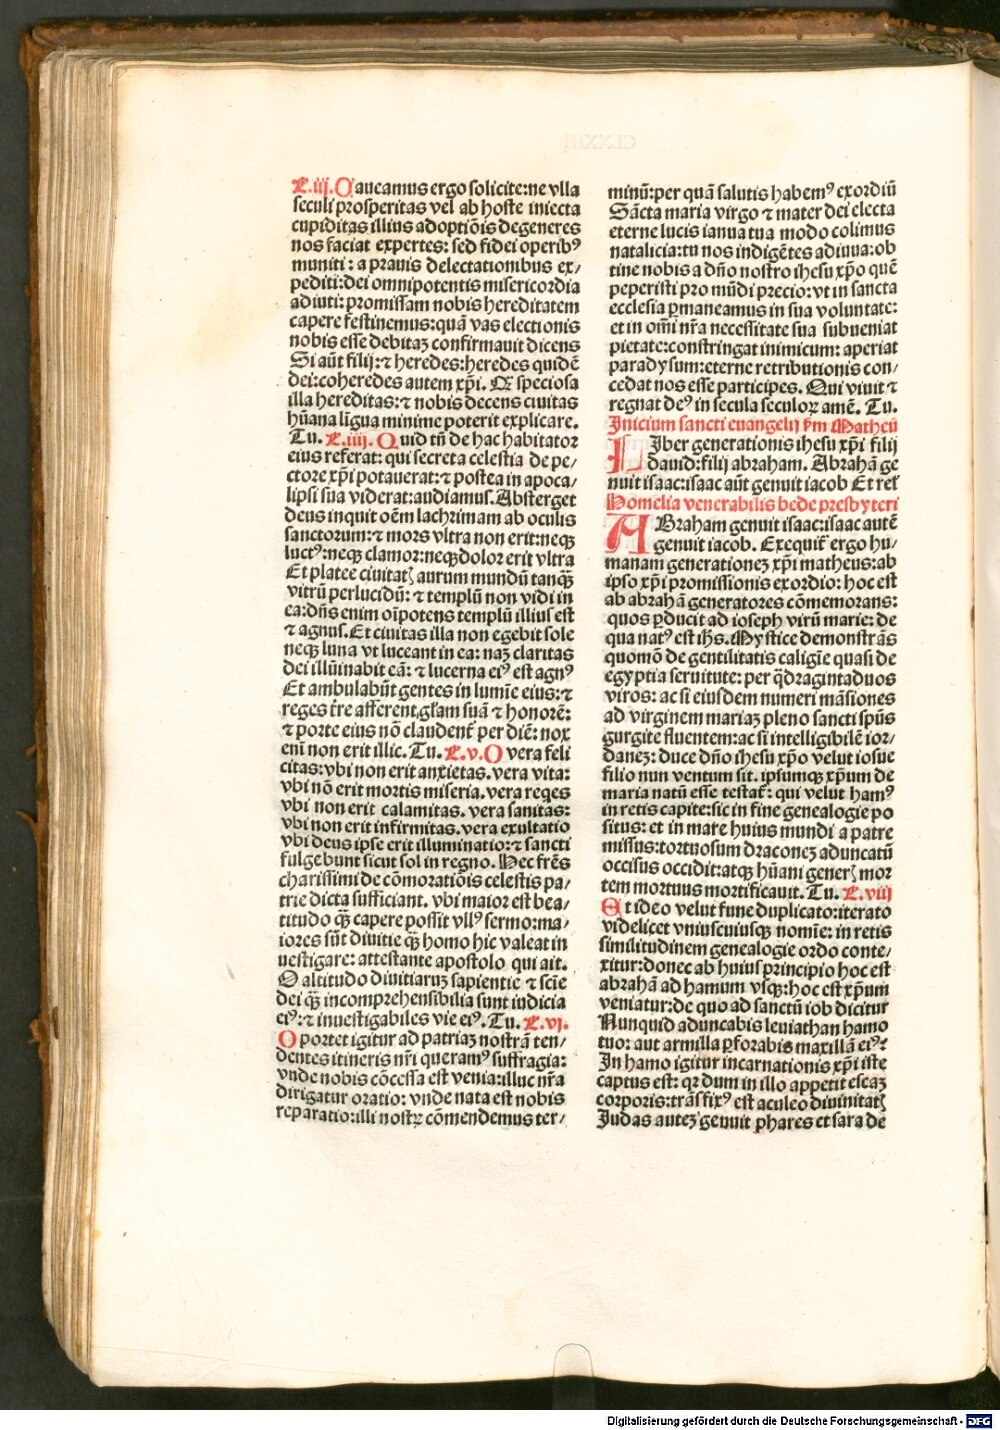 L. iij. Caueamus ergo solicite:ne vlla
seculi prosperitas vel ab hoste iniecta
cupiditas illius adoptiōis degeneres
nos faciat expertes: sed fidei operibꝰ
muniti: a prauis delectationibus ex⸗
pediti:dei omnipotentis misericordia
adiuti: promissam nobis hereditatem
capere festinemus:quā vas electionis
nobis esse debitaꝫ confirmauit dicens
Si aūt filij:⁊ heredes:heredes quidē
dei:coheredes autem xp̄i. Q̄ speciosa
illa hereditas:⁊ nobis decens ciuitas
hūana līgua minime poterit explicare.
Tu. L. iiij. Quid tn̄ de hac habitator
eius referat: qui secreta celestia de pe⸗
ctore xp̄i potauerat:⁊ postea in apoca⸗
lipsi sua viderat:audiamus. Absterget
deus inquit oēm lachrimam ab oculis
sanctorum:⁊ mors vltra non erit:neqꝫ
luctꝰ:neqꝫ clamor:neqꝫ dolor erit vltra
Et platee ciuitatꝭ aurum mundū tanqꝫ̄
vitrū perlucidū: ⁊ templū non vidi in
ea:dn̄s enim oīpotens templū illius est
⁊ agnus. Et ciuitas illa non egebit sole
neqꝫ luna vt luceant in ea: naꝫ claritas
dei illūinabit eā: ⁊ lucerna eiꝰ est agnꝰ
Et ambulabūt gentes in lumīe eius:⁊
reges tr̄e afferent gl̄am suā ⁊ honorē:
⁊ porte eius nō claudent̄ per diē: nox
enī non erit illic. Tu. L. v. O vera feli
citas:vbi non erit anxietas. vera vita:
vbi nō erit mortis miseria. vera reges
vbi non erit calamitas. vera sanitas:
vbi non erit infirmitas. vera exultatio
vbi deus ipse erit illuminatio:⁊ sancti
fulgebunt sicut sol in regno. Hec fr̄es
charissimi de cōmoratiōis celestis pa⸗
trie dicta sufficiant. vbi maior est bea⸗
titudo qꝫ̄ capere possit vllꝰ sermo:ma⸗
iores sūt diuitie qꝫ̄ homo hic valeat in
uestigare: attestante apostolo qui ait.
O altitudo diuitiarꝫ sapientie ⁊ scīe
dei qꝫ̄ incomprehensibilia sunt iudicia
eiꝰ:⁊ inuestigabiles vie eiꝰ. Tu. L. vi.
Oportet igitur ad patriaꝫ nostrā ten⸗
dentes itineris nr̄i queramꝰ suffragia:
vnde nobis cōcessa est venia:illuc nr̄a
dirigatur oratio: vnde nata est nobis
reparatio:illi nostꝝ cōmendemus ter⸗
minū:per quā salutis habemꝰ exordiū
Sācta maria virgo ⁊ mater dei electa
eterne lucis ianua tua modo colimus
natalicia:tu nos indigētes adiuua:ob
tine nobis a dn̄o nostro ihesu xp̄o quē
peperisti pro mūdi precio: vt in sancta
ecclesia ꝑmaneamus in sua voluntate:
et in om̄i nr̄a necessitate sua subueniat
pietate:constringat inimicum: aperiat
paradysum:eterne retributionis con⸗
cedat nos esse participes. Qui viuit ⁊
regnat deꝰ in secula seculoꝝ amē. Tu.
Inicium sancti euangelij ẜm Matheū
LIber generationis ihesu xp̄i filij
dauid:filij abraham. Abrahā ge
nuit isaac:isaac aūt genuit iacob Et rel̄
Homelia venerabilis bede presbyteri
ABraham genuit isaac:isaac autē
genuit iacob. Exequit̄ ergo hu⸗
manam generationeꝫ xp̄i matheus:ab
ipso xp̄i promissionis exordio: hoc est
ab abrahā generatores cōmemorans:
quos ꝑducit ad ioseph virū marie: de
qua natꝰ est ih̄s. Mystice demonstrās
quomō de gentilitatis caligīe quasi de
egyptia seruitute: per q̄dragintaduos
viros: ac si eiusdem numeri māsiones
ad virginem mariaꝫ pleno sancti spūs
gurgite fluentem:ac si intelligibilē ior⸗
daneꝫ: duce dn̄o ihesu xp̄o velut iosue
filio nun ventum sit. ipsumqꝫ xp̄um de
maria natū esse testat̄: qui velut hamꝰ
in retis capite:sic in fine genealogie po
situs: et in mare huius mundi a patre
missus:tortuosum draconeꝫ aduncatū
occisus occidit:atqꝫ hūani generꝭ mor
tem mortuus mortificauit. Tu. L. viij
Et ideo velut fune duplicato:iterato
videlicet vniuscuiusqꝫ nomīe: in retis
similitudinem genealogie ordo conte⸗
xitur:donec ab huius principio hoc est
abrahā ad hamum vsqꝫ:hoc est xp̄um
veniatur:de quo ad sanctū iob dicitur
Nunquid aduncabis leuiathan hamo
tuo: aut armilla ꝑforabis maxillā eiꝰ?
In hamo igitur incarnationis xp̄i iste
captus est: qꝛ dum in illo appetit escaꝫ
corporis:trāsfixꝰ est aculeo diuinitatꝭ
Judas auteꝫ genuit phares et sara de
Digitalisierung gefördert durch die Deutsche Forschungsgemeinschaft - DFG